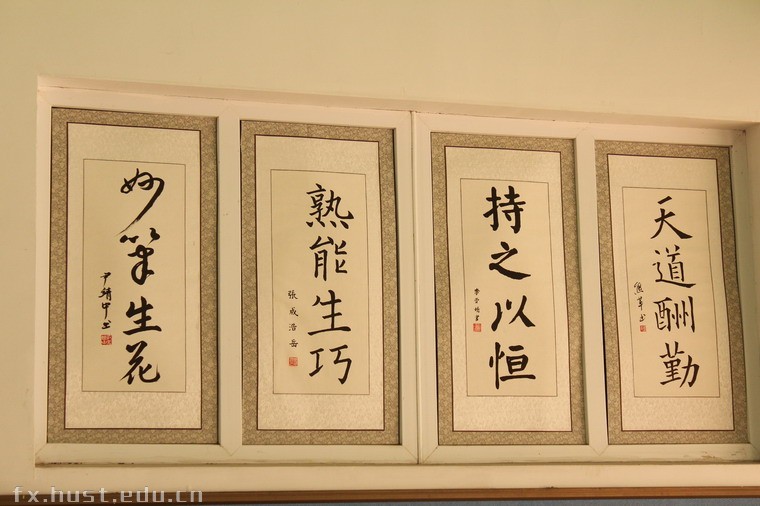 妙笔生花
尹靖中书
熟能生巧
張成浩岳
持之以恒
天道酬勤
fx.hust.edu.cn